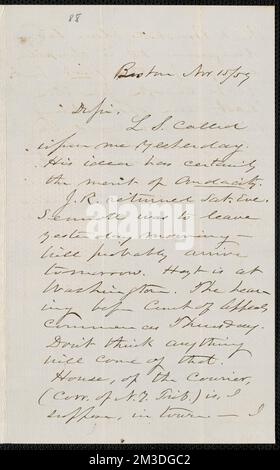 88
Boston Nov 15/59
D Sir,
L. S. called
upon me yesterday.
His idea has certainly
the merit of Audacity.
J. R. returned Sat. Eve.
was to leave
yesterday morning —
will probably arrive
tomorrow. Hoyt is at
Washington. The hear-
ing bef. Court of Appeals
commences Thursday.
Don't think anything
will come of that.
House, of the Courier,
(corr. of N. Y. Trib.) is, I
suppose, in town — I
alamy
Image ID: 2M3DGC2
www.alamy.com